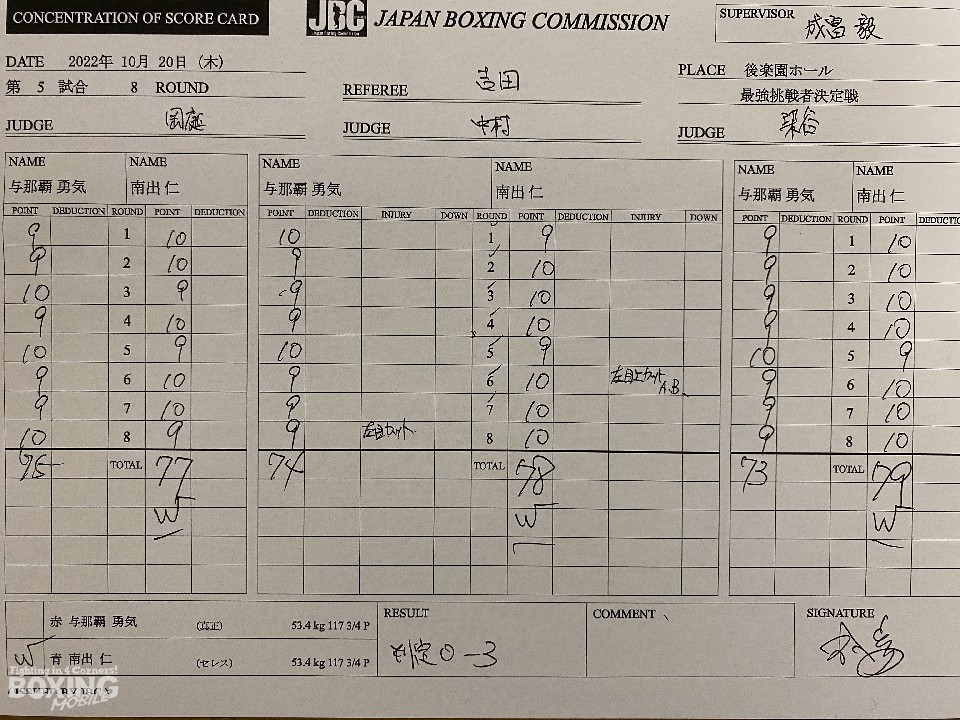 CONCENTRATION OF SCORE CARD
JBC JAPAN BOXING COMMISSION
SUPERVISOR 成富 毅
DATE 2022年 10月 20日 (木)
第 5 試合 8 ROUND
REFEREE 吉田
PLACE 後楽園ホール
最強挑戦者決定戦
JUDGE 岡庭 JUDGE 中村 JUDGE 染谷
NAME NAME NAME NAME NAME NAME
与那覇 勇気 南出 仁 与那覇 勇気 南出 仁 与那覇 勇気 南出 仁
POINT DEDUCTION ROUND POINT DEDUCTION POINT DEDUCTION INJURY DOWN ROUND POINT DEDUCTION INJURY DOWN POINT DEDUCTION ROUND POINT DEDUCTIO
9 1 10 10 1 9 9 1 10
9 2 10 9 2 10 9 2 10
10 3 9 9 3 10 9 3 10
9 4 10 9 4 10 9 4 10
10 5 9 10 5 9 10 5 9
9 6 10 9 6 10 左目上カット A.B. 9 6 10
9 7 10 9 7 10 9 7 10
10 8 9 9 左目カット 8 10 9 8 10
75 TOTAL 77 74 TOTAL 78 73 TOTAL 79
W W W
赤 与那覇 勇気 (真正) 53.4 kg 117 3/4 P
W 青 南出 仁 (セレス) 53.4 kg 117 3/4 P
RESULT
判定 0-3
COMMENT
SIGNATURE
Fighting in 4 Corners!
BOXING
MOBILE
ISSUED BY JBC